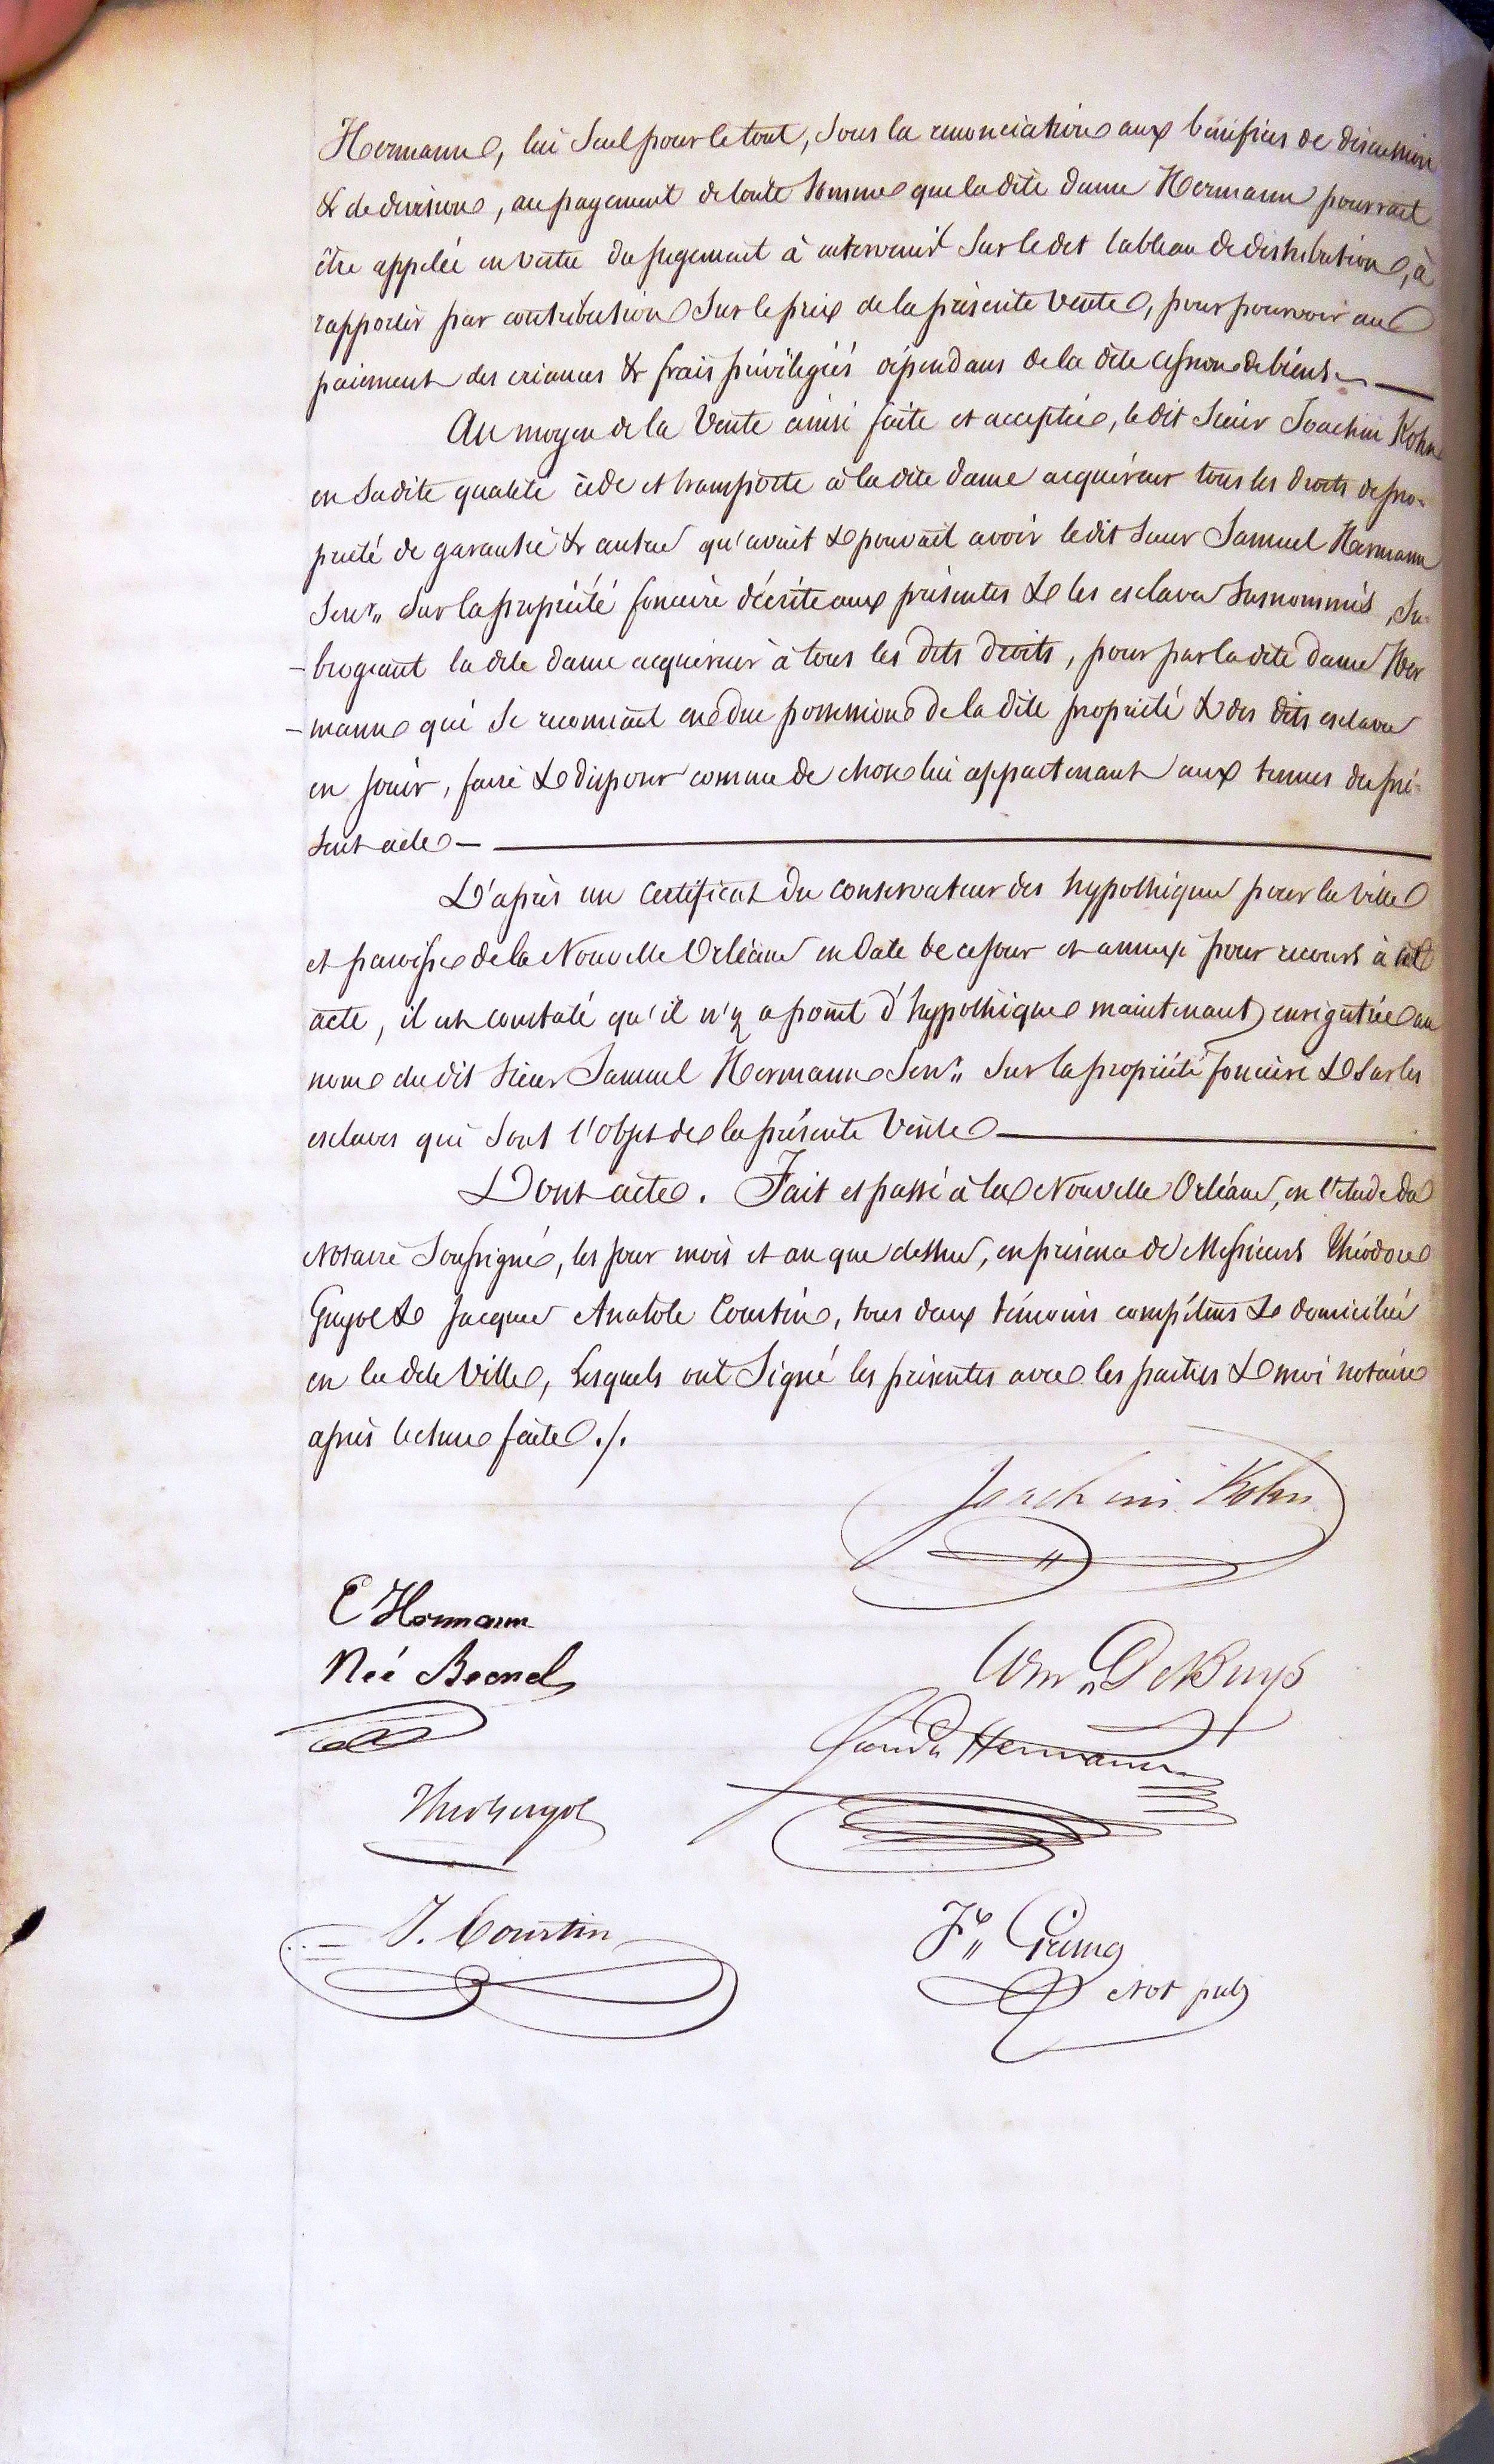 Hermann, lui seul pour le tout, sous la renonciation aux bénéfices de discussion
& de division, au payement de toute somme que la dite dame Hermann pourrait
être appelée en vertu du jugement à intervenir sur le dit tableau de distribution, à
rapporter par contribution sur le prix de la présente vente, pour pourvoir au
paiement des créances & frais privilégiés dépendans de la dite cession de biens.
Au moyen de la Vente ainsi faite et acceptée, le dit Sieur Joachim Kohn
en sa dite qualité cède et transporte à la dite dame acquéreur tous les droits de pro-
priété de garantie & autres qu'avait & pouvait avoir le dit Sieur Samuel Hermann
Senr. sur la propriété foncière décrite aux présentes & les esclaves susnommés, su-
-brogeant la dite dame acquéreur à tous les dits droits, pour par la dite dame Her
-mann qui se reconnait en due possession de la dite propriété & des dits esclaves
en jouir, faire & disposer comme de chose lui appartenant aux termes du pré-
sent acte —
D'après un certificat du conservateur des hypothèques pour la ville
et paroisse de la Nouvelle Orléans en date de ce jour et annexé pour recours à cet
acte, il est constaté qu'il n'y a point d'hypothèque maintenant enregistrée au
nom du dit Sieur Samuel Hermann Senr. sur la propriété foncière & sur les
esclaves qui sont l'objet de la présente Vente —
Dont acte. Fait et passé à la Nouvelle Orléans, en l'étude du
Notaire soussigné, les jour mois et an que dessus, en présence de Messieurs Théodore
Guyol & Jacques Anatole Courtin, tous deux témoins compétens & domiciliés
en la dite Ville, lesquels ont signé les présentes avec les parties & moi notaire
après lecture faite ./.
Joachim Kohn
E Hermann
Née Becnel
Wm DeBuys
Hermann
Theo Guyol
J. Courtin
Not pub